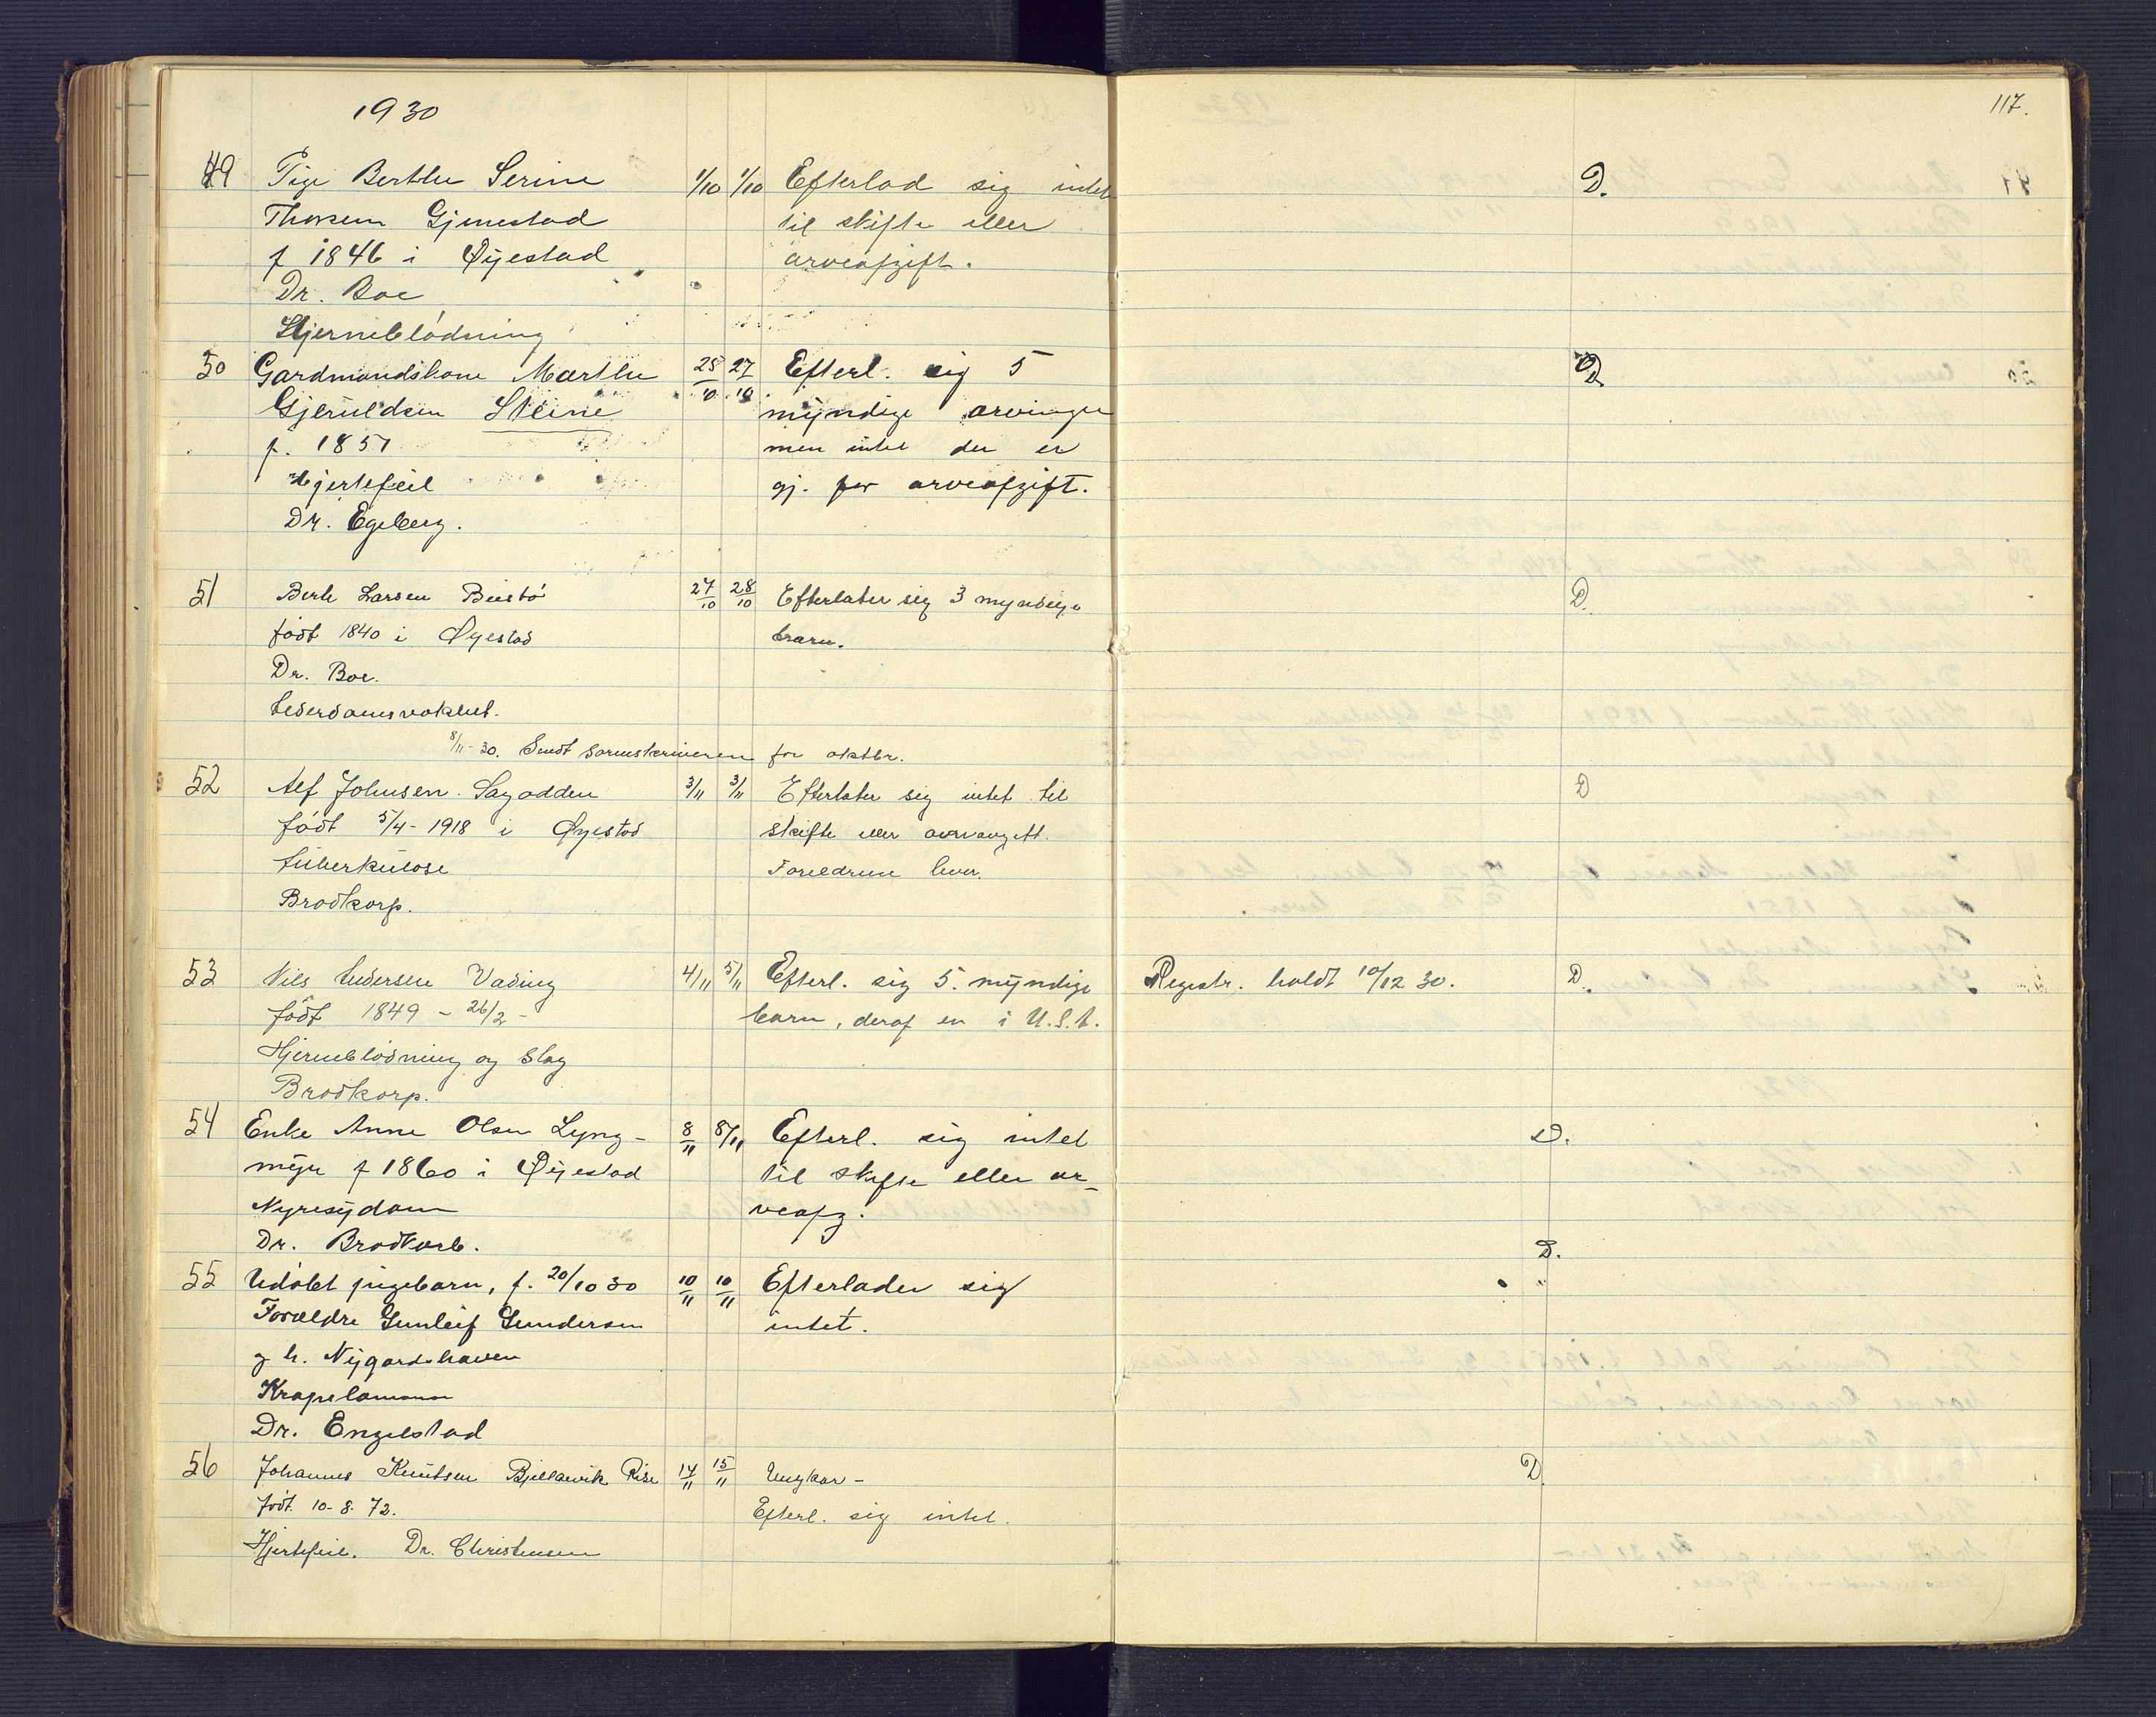 1930
117.
49 Pige Berthe Serine 1/10 1/10 Efterlod sig intet D.
Thorsen Gjennestad til skifte eller
f 1846 i Øyestad arveafgift.
Dr. Boe
Hjerneblødning
50 Gardmandskone Marthe 25/10 27/10 Efterl. sig 5 D.
Gjeruldsen Steine myndige arvinger
f. 1851 men intet der er
Hjertefeil gj. for arveafgift.
Dr. Egeberg.
51 Berte Larsen Buistø 27/10 28/10 Efterlater sig 3 myndige D.
født 1840 i Øyestad barn.
Dr. Boe.
alderdomsvakhet.
8/11-30. Sendt sorenskriveren for oktbr.
52 Alf Johnsen Sagodden 3/11 3/11 Efterlater sig intet til D
født 5/4-1918 i Øyestad skifte eller arveavgift.
tuberkulose Foreldrene lever.
Brodkorp.
53 Nils Andersen Vading 4/11 5/11 Efterl. sig 5. myndige Registr. holdt 10/12 30. D.
født 1849 - 26/2 - barn, deraf en i U.S.A.
Hjerneblødning og slag
Brodkorp.
54 Enke Anne Olsen Lyng- 8/11 8/11 Efterl. sig intet D.
myr f 1860 i Øyestad til skifte eller ar-
Nyresydom veafg.
Dr. Brodkorb. D.
55 Udøbt pigebarn, f. 20/10 30 10/11 10/11 Efterlader sig "
Foreldre Gunleif Gundersen intet.
g h. Nygardshaven
Krapelamme
Dr. Engelstad
56 Johannes Knutsen Bjellavik Rise 14/11 15/11 Ungkar - D.
født. 10-8-72. Efterl. sig intet.
Hjertefeil. Dr. Christensen